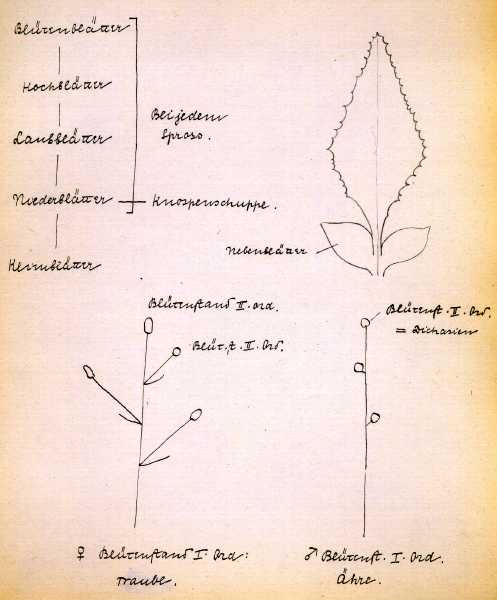 Blütenblätter
Hochblätter
Laubblätter
Niederblätter
Keimblätter
Bei jedem
Spross.
Knospenschuppe.
Nebenblätter
Blütenstand II. Ord.
Blüt.st. II. Ord.
Blütenst. II. Ord.
= Dichasien
♀ Blütenstand I. Ord:
Traube.
♂ Blütenst. I. Ord.
Ähre.